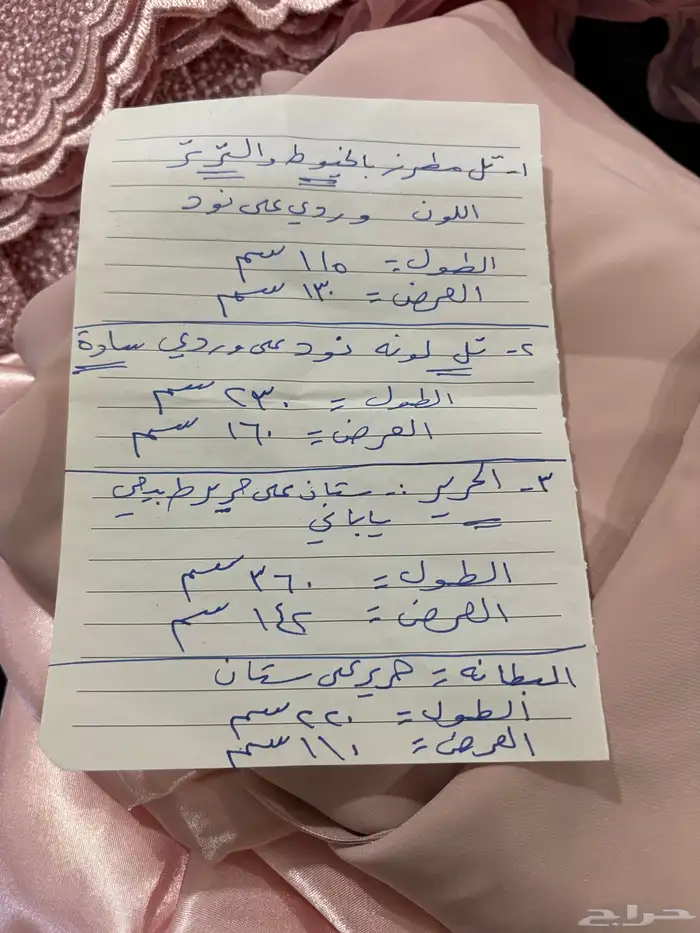 ١- تل مطرز بالخيوط والترتر
اللون وردي على نود
الطول = ١١٥ سم
العرض = ١٣٠ سم
٢- تل لونه نود على وردي سادة
الطول = ٢٣٠ سم
العرض = ١٦٠ سم
٣- الحرير :- ستان على حرير طبيعي
ياباني
الطول = ٣٦٠ سم
العرض = ١٤٢ سم
البطانه = حرير على ستان
الطول = ٢٢٠ سم
العرض = ١١٠ سم
حراج